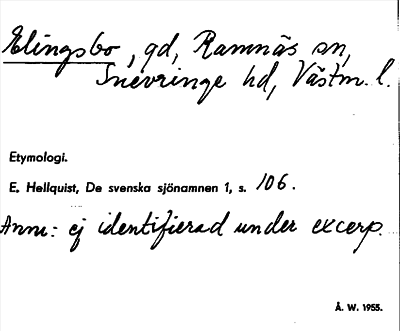 Elingsbo, gd, Ramnäs sn,
Snevringe hd, Västm. l.
Etymologi.
E. Hellquist, De svenska sjönamnen 1, s. 106.
Anm: ej identifierad under excerp.
Å. W. 1955.